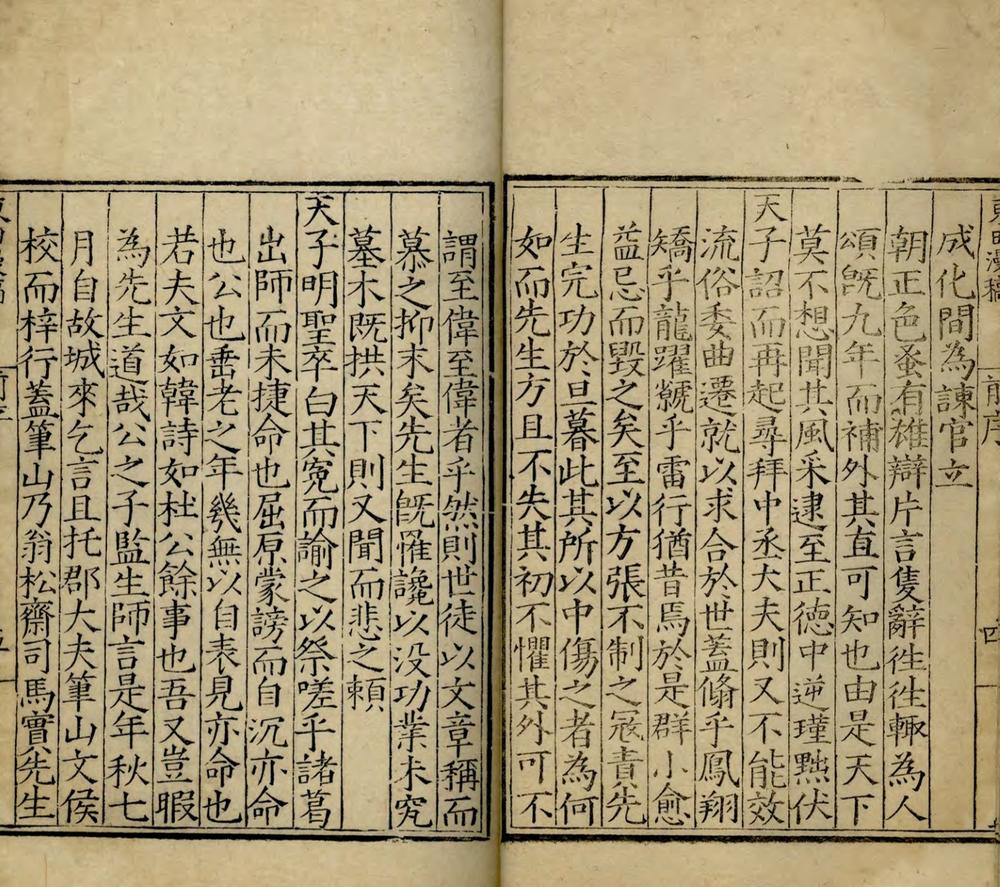 東田漫稿
前序
四
成化間為諫官立
朝正色蚤有雄辯片言隻辭徃徃輙為人
頌旣九年而補外其直可知也由是天下
莫不想聞其風采逮至正德中逆瑾黜伏
天子詔而再起尋拜中丞大夫則又不能效
流俗委曲遷就以求合於世蓋翛乎鳳翔
矯乎龍躍虩乎雷行猶昔焉於是群小愈
益忌而毀之矣至以方張不制之冦責先
生完功於旦暮此其所以中傷之者為何
如而先生方且不失其初不懼其外可不
謂至偉至偉者乎然則世徒以文章稱而
慕之抑末矣先生旣罹讒以没功業未究
墓木既拱天下則又聞而悲之頼
天子明聖卒白其寃而諭之以祭嗟乎諸葛
出師而未捷命也屈原蒙謗而自沉亦命
也公也耋老之年幾無以自表見亦命也
若夫文如韓詩如杜公餘事也吾又豈暇
為先生道哉公之子監生師言是年秋七
月自故城來乞言且托郡大夫筆山文侯
校而梓行蓋筆山乃翁松齋司馬實先生